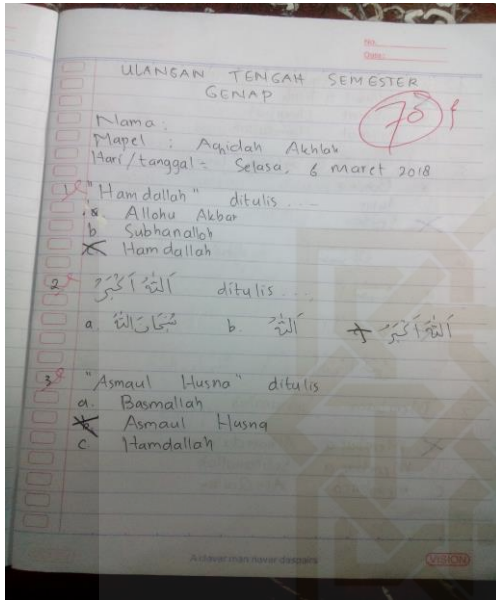 No.
Date:
ULANGAN TENGAH SEMESTER
GENAP
75
Nama :
Mapel : Aqidah Akhlak
Hari/tanggal = Selasa, 6 Maret 2018
1. "Hamdallah" ditulis ....
a Allohu Akbar
b Subhanalloh
c Hamdallah
2 اَللّٰهُ اَكْبَرُ ditulis ....
a. سُبْحَانَ اللّٰهُ b. اَللّٰهُ c اَللّٰهُ اَكْبَرُ
3 "Asmaul Husna" ditulis
a. Basmallah
b Asmaul Husna
c. Hamdallah
A clever man never despairs
VISION